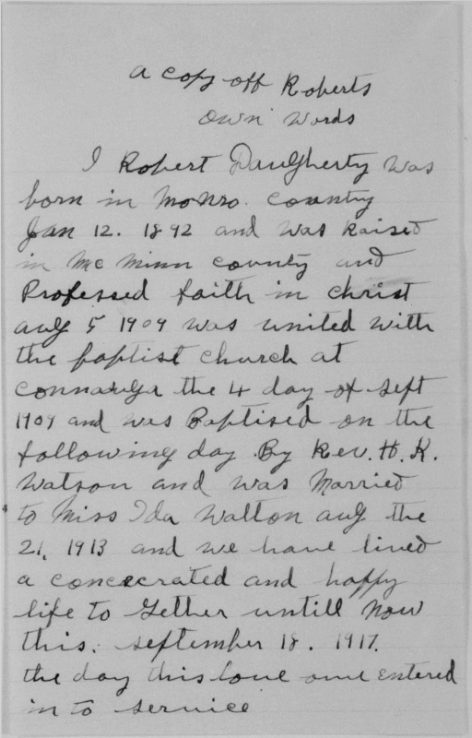 a copy off Roberts
own words
I Robert Daugherty was
born in Monro. county
Jan 12. 1892 and was Raised
in Mc Minn county and
Professed faith in christ
aug 5 1909 was united with
the baptist church at
the 4 day of sept
1909 and was Baptised on the
following day By Rev. H. K.
Watson and was Married
to Miss Ida Walton aug the
21, 1913 and we have lived
a concecrated and happy
life to Gether untill now
this. september 18. 1917.
the day this love one entered
in to service